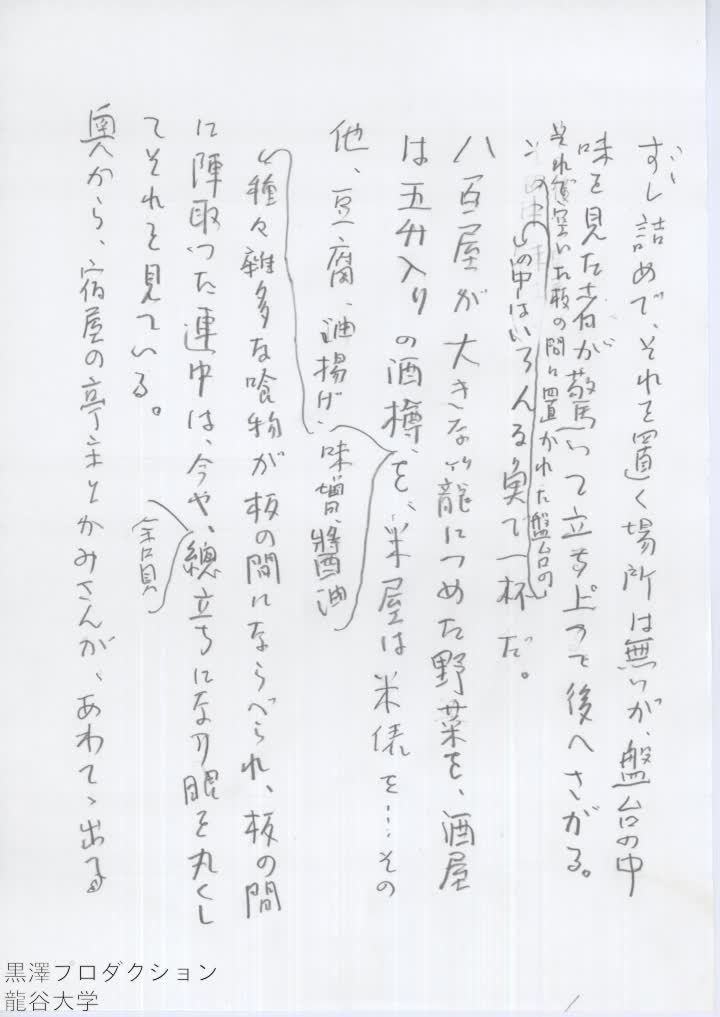 ずし詰めで、それを置く場所は無いが、盤台の中
味を見た者が驚いて立ち上つて後へさがる。
それ後空いた板の間に置かれた盤台の
の中はいろんな魚で一杯だ。
八百屋が大きな籠につめた野菜を、酒屋
は五升入りの酒樽を、米屋は米俵を…その
他、豆腐、油揚げ、味噌、醤油
種々雑多な喰物が板の間にならべられ、板の間
に陣取つた連中は、今や、總立ちになり眼を丸くし
全員
てそれを見ている。
奥から、宿屋の亭主とかみさんが、あわてゝ出る。
黒澤プロダクション
龍谷大学